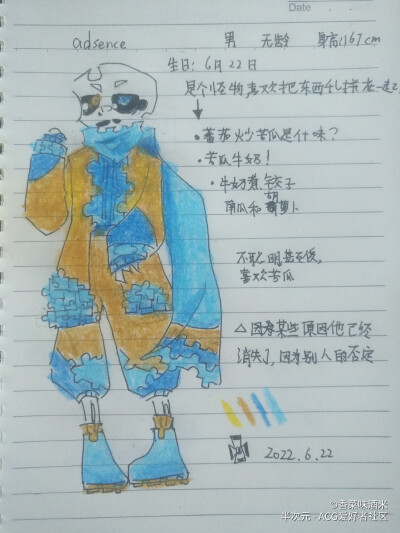 Date
adsence
男 无龄 身高167cm
生日：6月22日
是个怪物喜欢把东西乱拼在一起
•蕃茄炒苦瓜是什味？
•苦瓜牛奶！
•牛奶煮饺子
南瓜和胡萝卜
不聪明甚至傻，
喜欢苦瓜
△因为某些原因他已经
消失了，因为别人的否定
2022.6.22
@香菜味酒米
半次元 - ACG爱好者社区